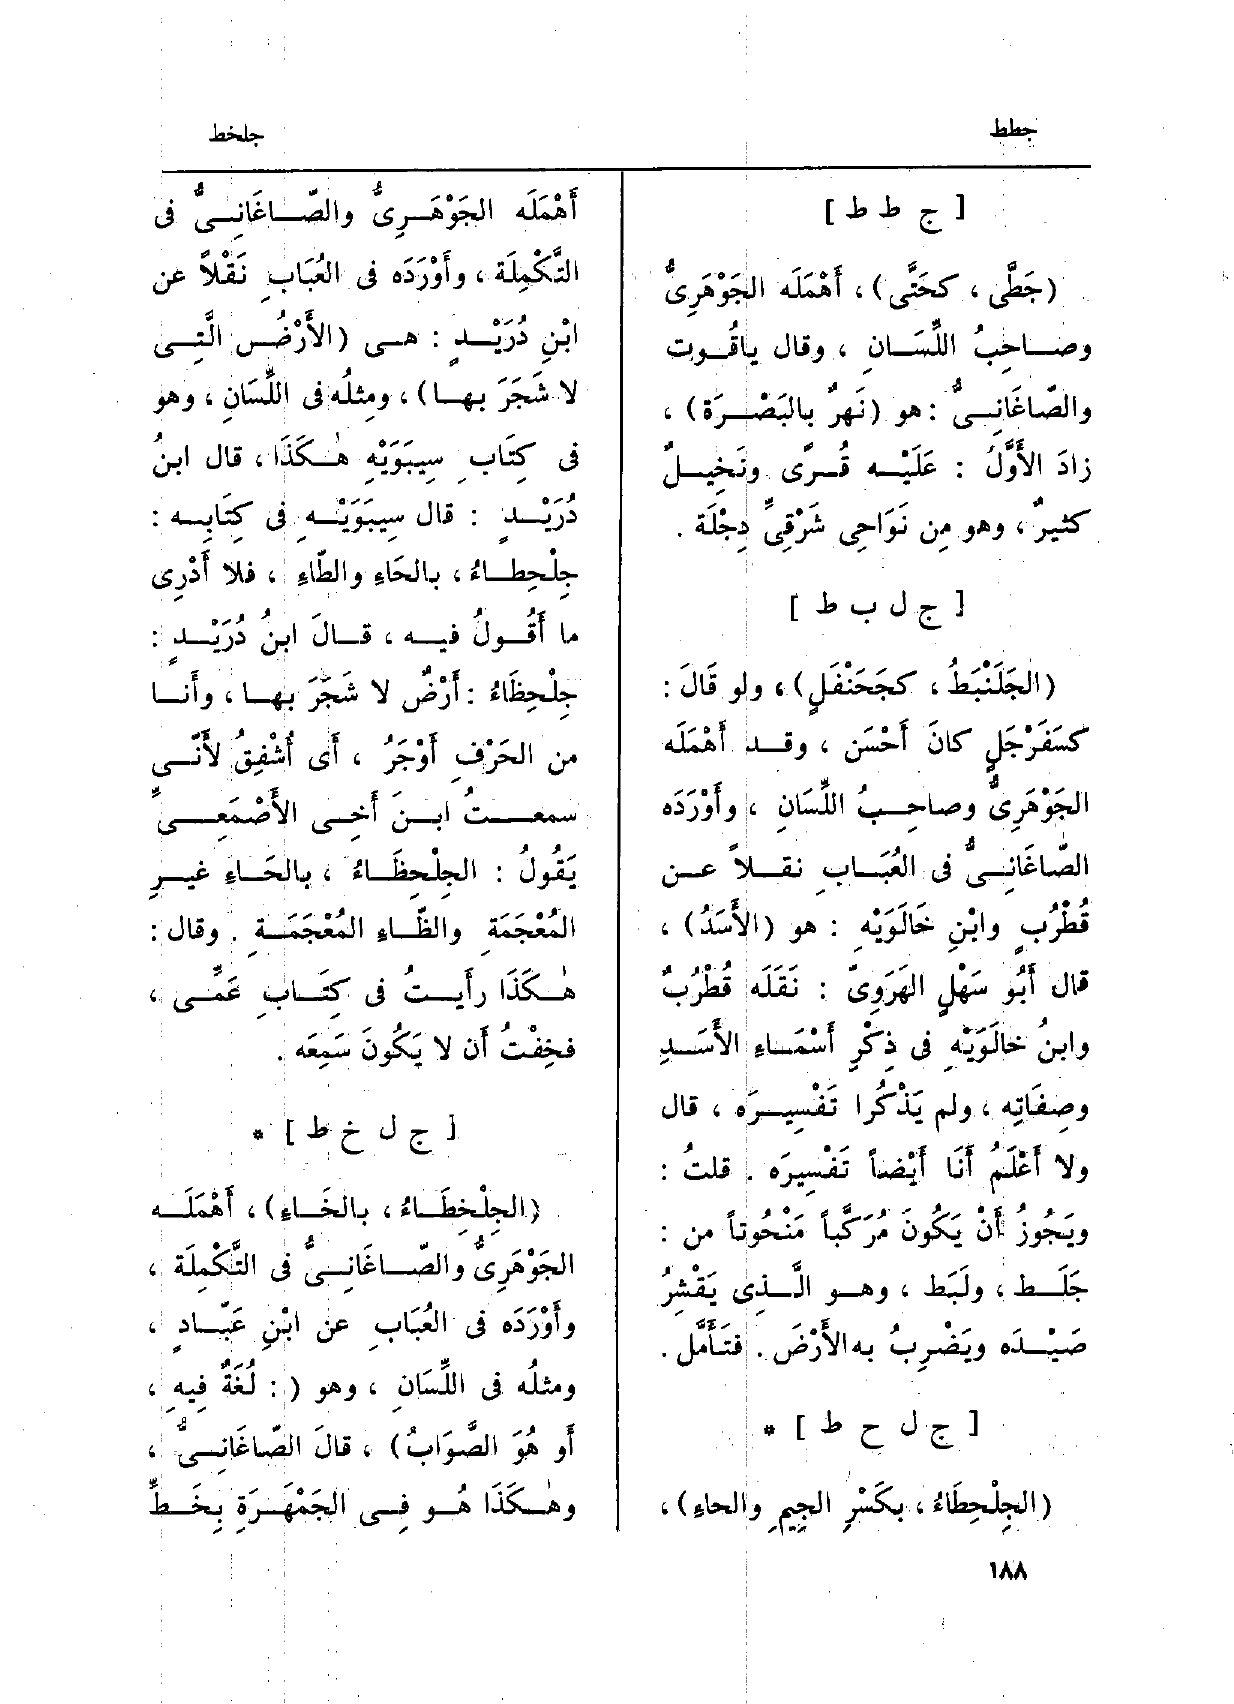 جطط
جلخط
[ ج ط ط ]
(جَطَّى ، كحَتَّى) ، أَهْمَلَه الجَوْهَرِىُّ
وصــاحِبُ اللِّسَــانِ ، وقال ياقُــوت
والصّاغَانِــىُّ : هو (نَهرٌ بالبَصْــرَة) ،
زادَ الأَوَّلُ : عَلَيْــه قُــرًى ونَخِيــلٌ
كثيرٌ ، وهو مِن نَوَاحِى شَرْقِىِّ دِجْلَة .
[ ج ل ب ط ]
(الجَلَنْبَطُ ، كجَحَنْفَلٍ) ، ولو قَالَ :
كسَفَرْجَلٍ كانَ أَحْسَن ، وقــد أَهْمَلَه
الجَوْهَرِىُّ وصاحِــبُ اللِّسَانِ ، وأَوْرَدَه
الصّاغَانِــىُّ فى العُبَــاب نقــلاً عــن
قُطْرُبٍ وابْنِ خَالَوَيْهِ : هو (الأَسَدُ) ،
قال أَبُو سَهْلٍ الهَرَوِىّ : نَقَلَه قُطْرُبٌ
وابنُ خالَوَيْهِ فى ذِكْرِ أَسْمَــاءِ الأَسَــدِ
وصِفَاتِه ، ولم يَذْكُرا تَفْسِيــرَه ، قال
ولا أَعْلَمُ أَنَا أَيْضاً تَفْسِيرَه . قلتُ :
ويَجُوزُ أَنْ يَكُونَ مُرَكَّباً مَنْحُوتاً من :
جَلَــط ، ولَبَط ، وهــو الَّــذِى يَقْشِرُ
صَيْــدَه ويَضْرِبُ به الأَرْضَ . فتَأَمَّل .
[ ج ل ح ط ] *
(الجِلْحِطَاءُ ، بكَسْرِ الجِيمِ والحاءِ) ،
أَهْمَلَه الجَوْهَــرِىُّ والصّــاغَانِــىُّ فى
التَّكْمِلَة ، وأَوْرَدَه فى العُبَابِ نَقْلاً عن
ابْنِ دُرَيْــدٍ : هــى (الأَرْضُ الَّتِــى
لا شَجَرَ بهــا) ، ومِثلُه فى اللِّسَانِ ، وهو
فى كِتَاب سِيبَوَيْهِ هٰــكَذَا ، قال ابنُ
دُرَيْــدٍ : قال سِيبَوَيْــهِ فى كِتَابِــه :
جِلْحِطــاءُ ، بالحَاءِ والطّاءِ ، فلا أَدْرِى
ما أَقُــولُ فيــه ، قــالَ ابنُ دُرَيْــدٍ :
جِلْحِظَاءُ : أَرْضٌ لا شَجَرَ بهــا ، وأَنــا
من الحَرْفِ أَوْجَرُ ، أَى أُشْفِقُ لأَنّــى
سمعــتُ ابــنَ أَخِــى الأَصْمَعِــىِّ
يَقُولُ : الجِلْحِظَــاءُ ، بالحَــاءِ غيــرِ
المُعْجَمَةِ والظَّــاءِ المُعْجَمَــةِ . وقال :
هٰــكَذَا رأَيــتُ فى كِتَــابِ عَمِّــى ،
فخِفْتُ أَن لا يَكُونَ سَمِعَه .
[ ج ل خ ط ] *
(الجِلْخِطَــاءُ ، بالخَــاءِ) ، أَهْمَلَــه
الجَوْهَرِىُّ والصّــاغَانِــىُّ فى التَّكْمِلَة ،
وأَوْرَدَه فى العُبَابِ عن ابْنِ عَبّــادٍ ،
ومثلُه فى اللِّسَانِ ، وهو ( : لُغَةٌ فِيهِ ،
أَو هُوَ الصَّوَابُ) ، قالَ الصّاغَانِــىُّ ،
وهٰــكَذَا هُــو فِــى الجَمْهَرَةِ بِخَــطِّ
١٨٨